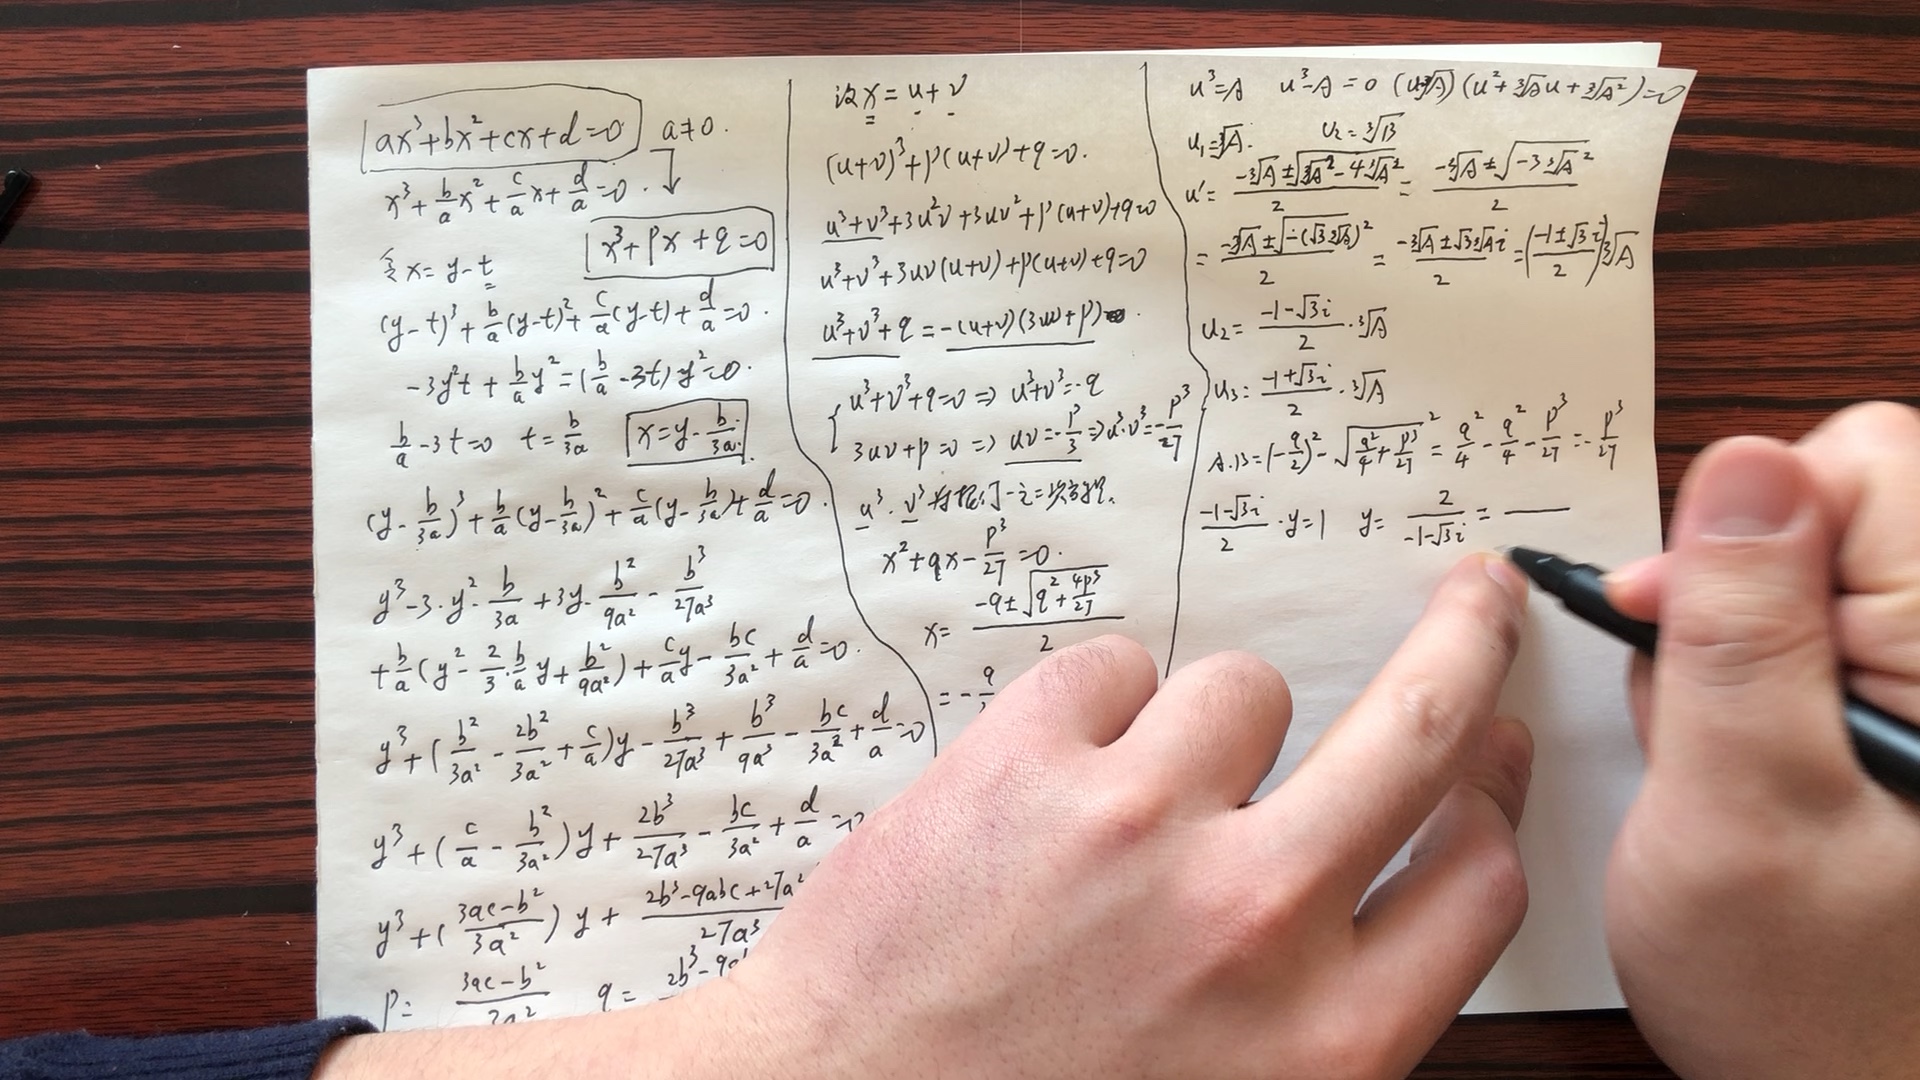 ax³+bx²+cx+d=0 a≠0.
x³+b/a x²+c/a x+d/a=0.
x³+px+q=0
令x=y-t
(y-t)³+b/a(y-t)²+c/a(y-t)+d/a=0.
-3y²t+b/a y²=(b/a-3t)y²=0.
b/a-3t=0 t=b/3a x=y-b/3a.
(y-b/3a)³+b/a(y-b/3a)²+c/a(y-b/3a)+d/a=0.
y³-3·y²·b/3a+3y·b²/9a²-b³/27a³
+b/a(y²-2/3·b/a y+b²/9a²)+c/a y-bc/3a²+d/a=0.
y³+(b²/3a²-2b²/3a²+c/a)y-b³/27a³+b³/9a³-bc/3a²+d/a=0
y³+(c/a-b²/3a²)y+2b³/27a³-bc/3a²+d/a=0
y³+(3ac-b²/3a²)y+2b³-9abc+27a²/27a³
p=3ac-b²/3a² q=2b³-9ab
设x=u+v
(u+v)³+p(u+v)+q=0.
u³+v³+3u²v+3uv²+p(u+v)+q=0
u³+v³+3uv(u+v)+p(u+v)+q=0
u³+v³+q=-(u+v)(3uv+p).
{u³+v³+q=0⇒u³+v³=-q
3uv+p=0⇒uv=-p/3⇒u³·v³=-p³/27
u³.v³为
x²+qx-p³/27=0.
x=-q±√(q²+4p³/27)/2
=-q
u³=A u³-A=0 (u-³√A)(u²+³√A u+³√A²)=0
u₁=³√A. u₂=³√B
u'=-³√A±√(³√A²-4³√A²)/2=-³√A±√(-3³√A²)/2
=-³√A±√(-(√3³√A)²)/2=-³√A±√3³√A i/2=(-1±√3i/2)³√A
u₂=-1-√3i/2·³√A
u₃=-1+√3i/2·³√A
A.B=(-q/2)²-√(q²/4+p³/27)²=q²/4-q²/4-p³/27=-p³/27
-1-√3i/2·y=1 y=2/-1-√3i=